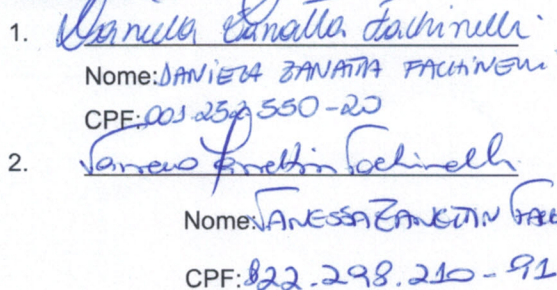 1. Daniela Zanatta Fachinelli
Nome: DANIELA ZANATTA FACHINELLI
CPF: 001.252.550-20
2. Vanessa Zanettin Fachinelli
Nome: VANESSA ZANETTIN FACC
CPF: 822.298.210-91